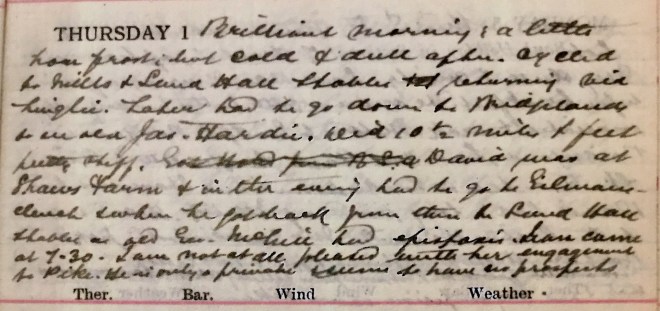 THURSDAY 1 Brilliant morning; a little
hoar frost; but cold & dull after. Cycled
to Mills & Lund Hall Stables returning via
. Later had to go down to Bridgelands
to see old Jas. Hardie. Did 10½ miles & feel
pretty stiff. David was at
Shaws Farm & in the evening had to go to
& when he got back from there to Lund Hall
Stables as old Geo. had epistaxis. Jean came
at 7-30. I am not at all pleased with her engagement
to Pike. He is only a private seems to have no prospects
Ther. Bar. Wind Weather